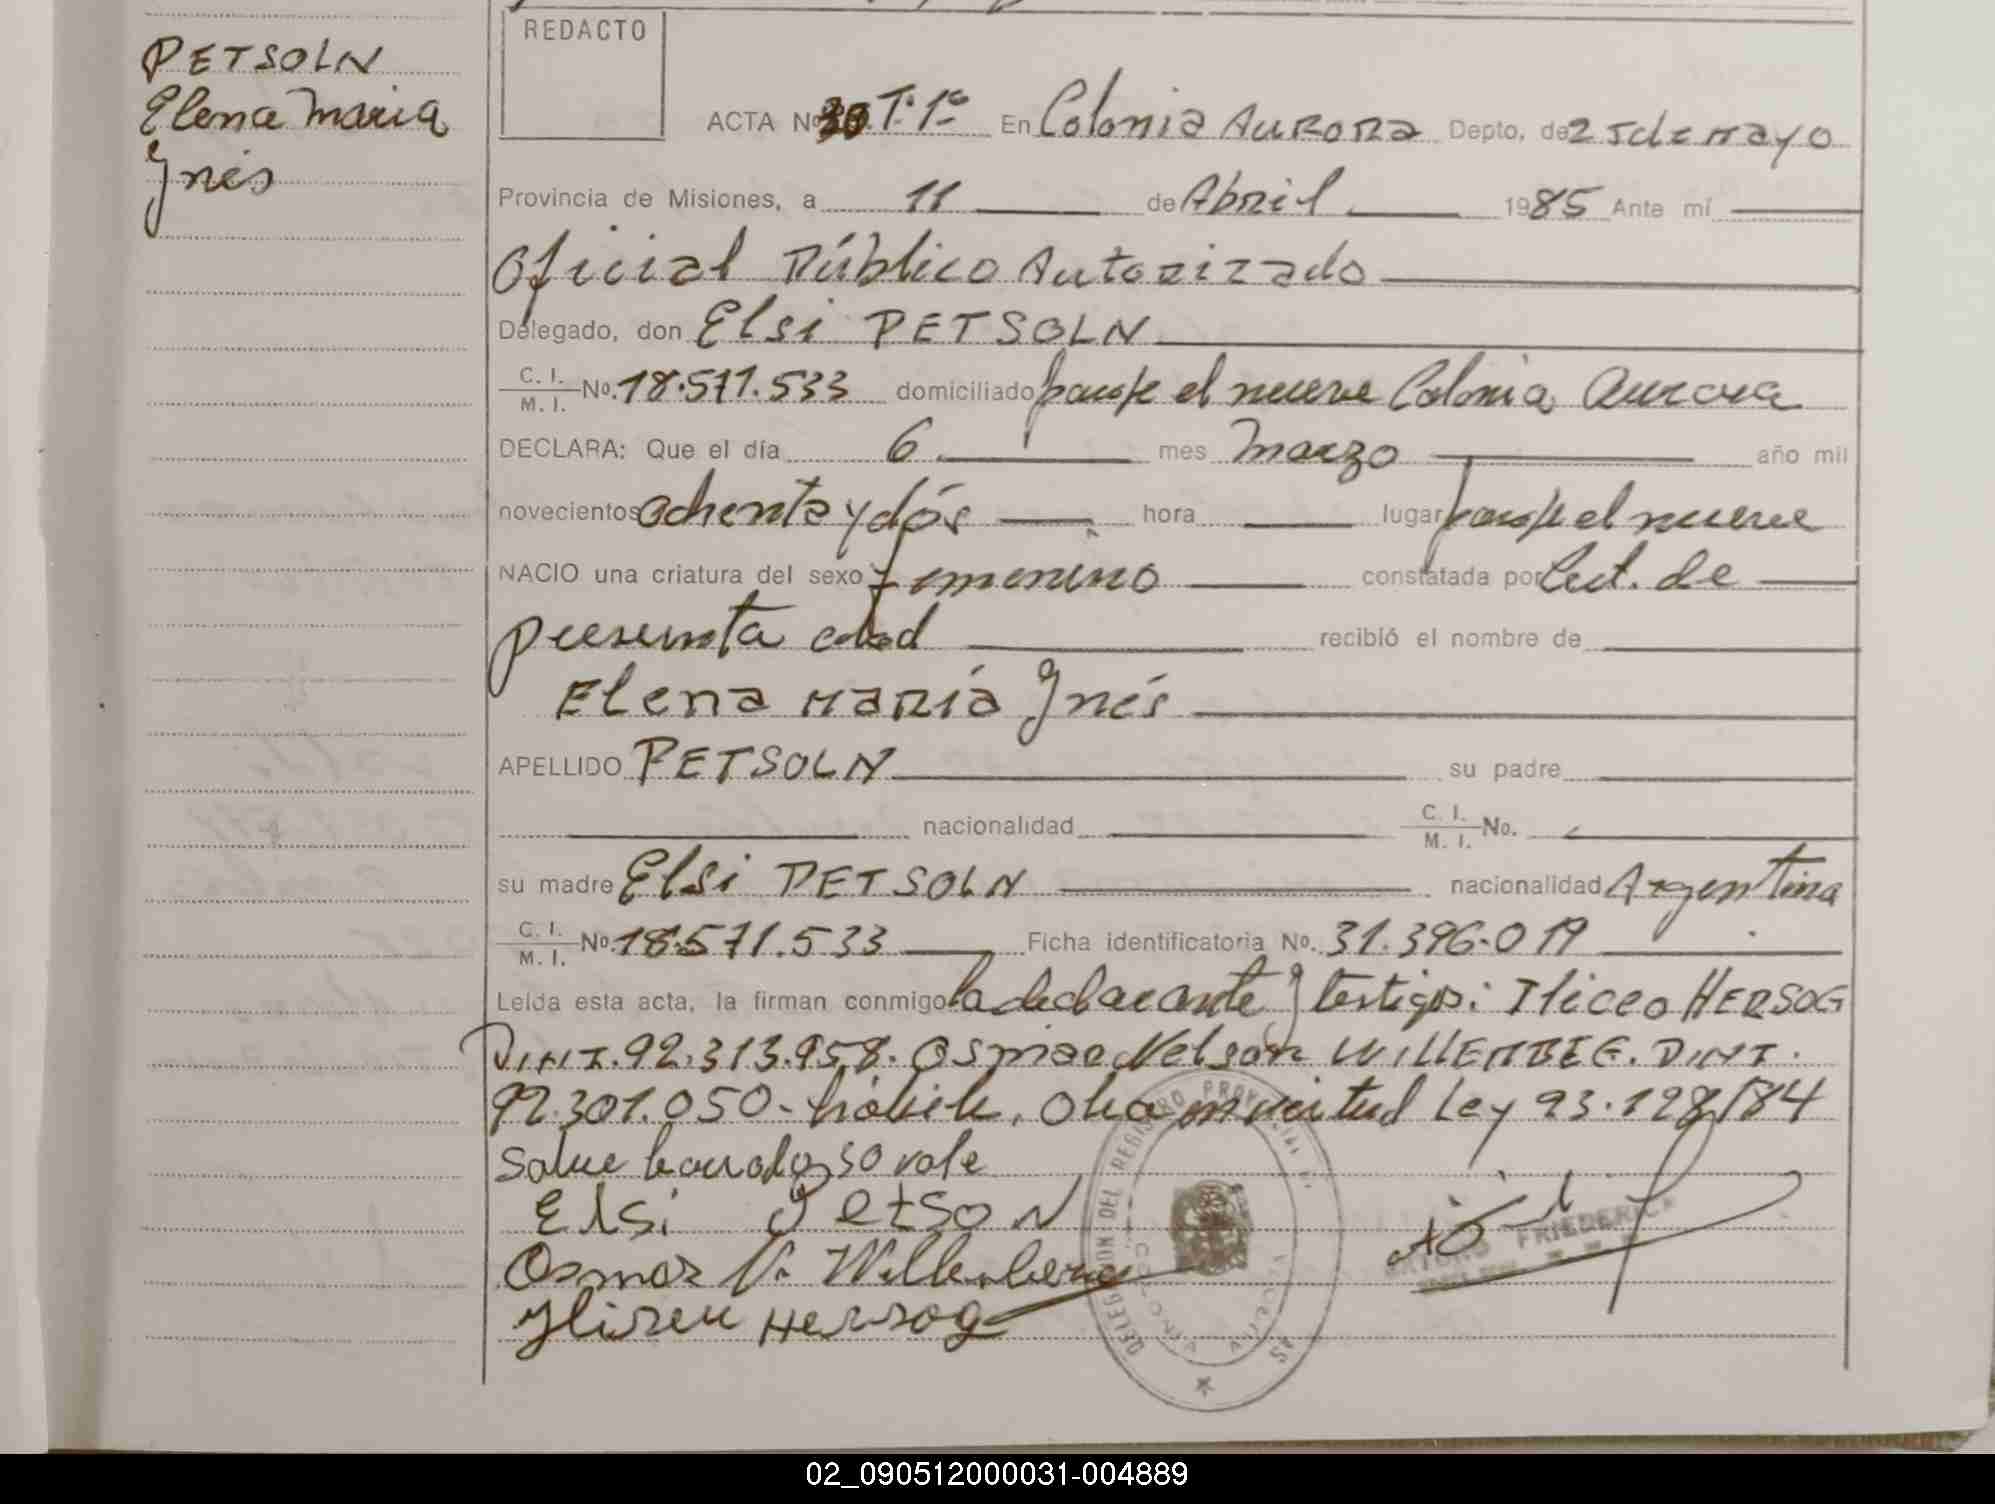 PETSOLN
Elena Maria
Inés
REDACTO
ACTA Nº 30 T. 1º En Colonia Aurora Depto, de 25 de Mayo
Provincia de Misiones, a 11 de Abril 1985 Ante mí
Oficial Público Autorizado
Delegado, don Elsi PETSOLN
C. I. / M. I. No. 18.571.533 domiciliado paraje el nueve Colonia Aurora
DECLARA: Que el día 6 mes Marzo año mil
novecientos ochenta y dós hora lugar paraje el nueve
NACIO una criatura del sexo femenino constatada por Cert. de
presunta edad recibió el nombre de
Elena María Inés
APELLIDO PETSOLN su padre
nacionalidad C. I. / M. I. No.
su madre Elsi PETSOLN nacionalidad Argentina
C. I. / M. I. No. 18.571.533 Ficha identificatoria No. 31.396.019
Leída esta acta, la firman conmigo la declarante y testigos: Iliceo HERSOG
D.N.I. 92.313.958. Osmar Nelson WILLEMBEG. D.N.I.
92.301.050 - hábil. en virtud Ley 23.128/84
Salve borrado 30 vale
Elsi Petson
Osmar N. Willenberg
Herzog
DELEGACION DEL REGISTRO PROVINCIAL DE LAS
COLONIA AURORA
ARTURO FRIEDERICH
02_090512000031-004889